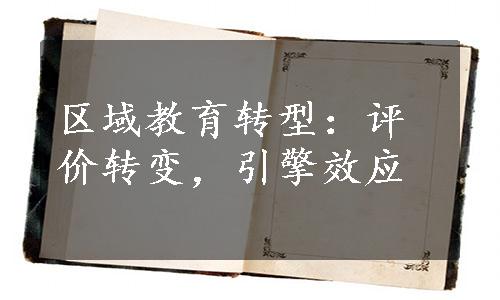 区域教育转型：评
价转变，引擎效应